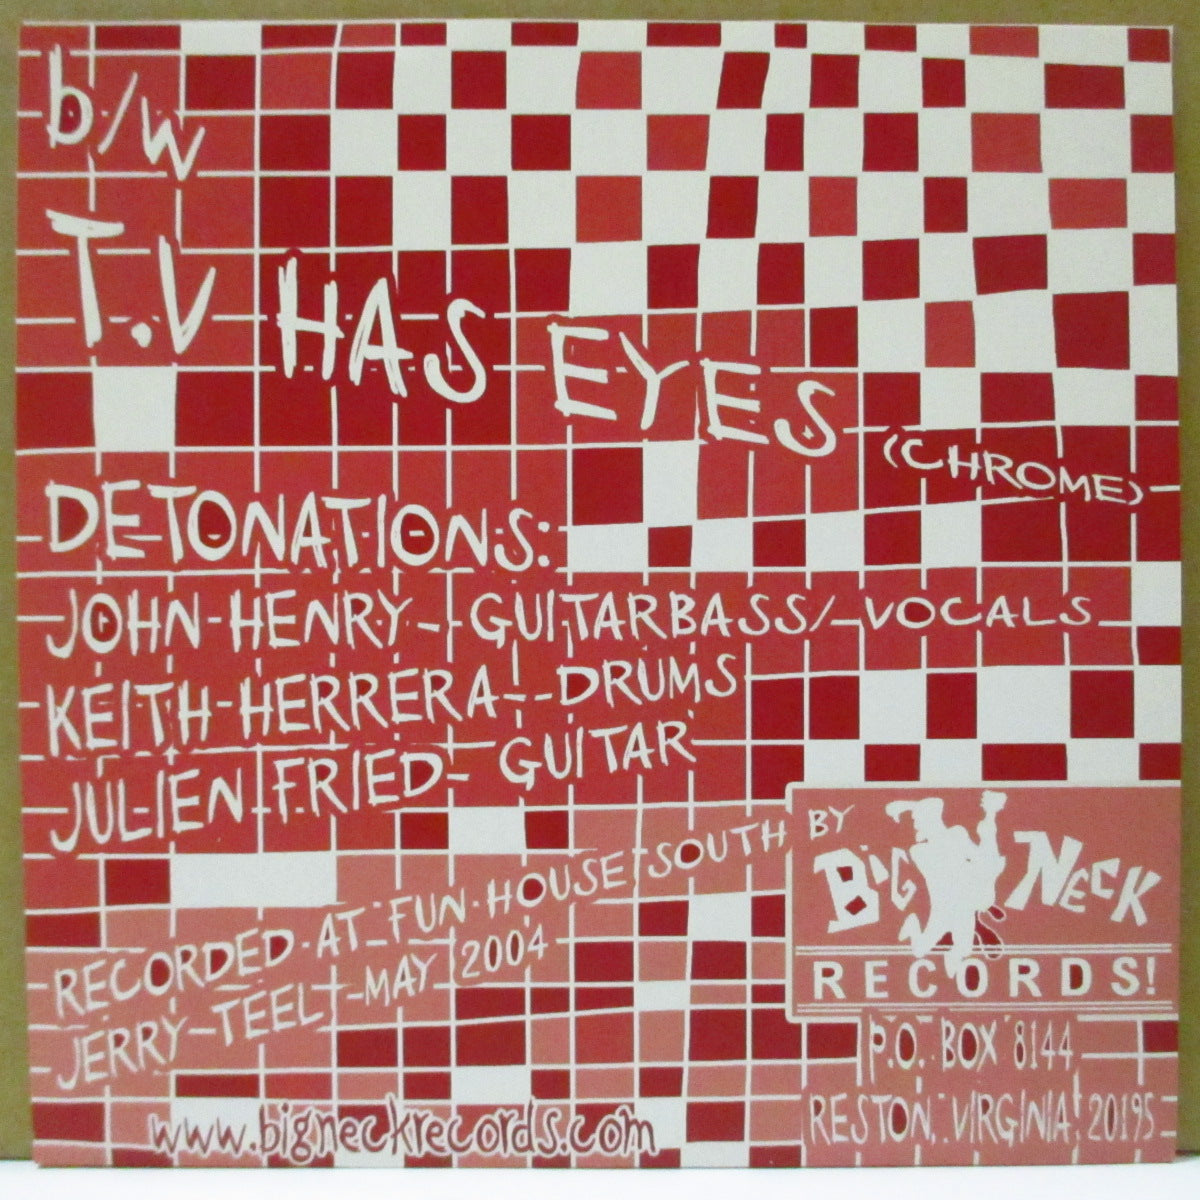 b/w
T.V HAS EYES (CHROME)
DETONATIONS:
JOHN HENRY - GUITARBASS/VOCALS
KEITH HERRERA - DRUMS
JULIEN FRIED - GUITAR
RECORDED AT FUN HOUSE SOUTH BY
JERRY TEEL - MAY 2004
BIG NECK
RECORDS!
P.O. BOX 8144
RESTON, VIRGINIA 20195
www.bigneckrecords.com